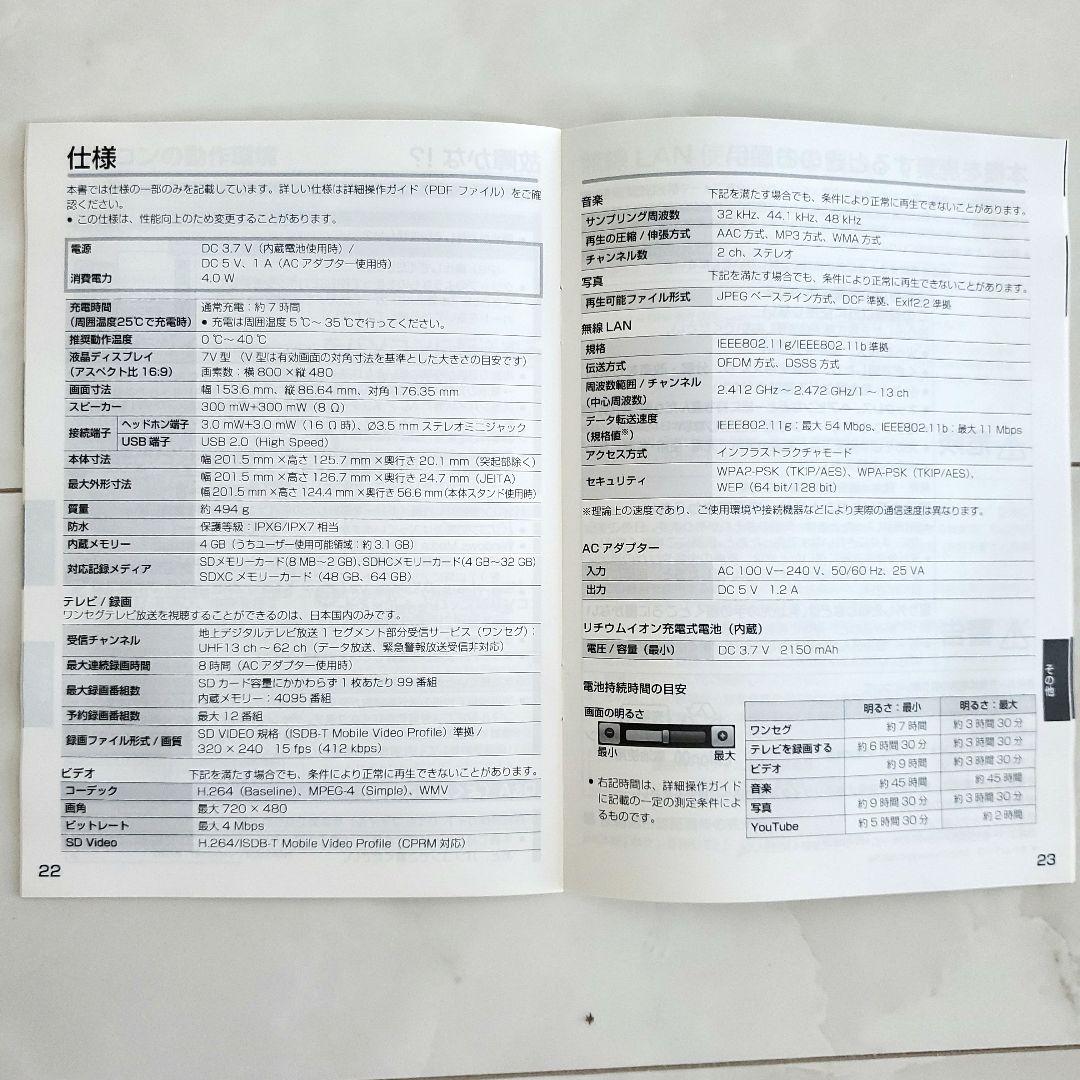 仕様
本書では仕様の一部のみを記載しています。詳しい仕様は詳細操作ガイド（PDF ファイル）をご確
認ください。
● この仕様は、性能向上のため変更することがあります。
電源 DC 3.7 V（内蔵電池使用時）/
DC 5 V、1 A（AC アダプター使用時）
消費電力 4.0 W
充電時間 通常充電：約 7 時間
（周囲温度25℃で充電時） ● 充電は周囲温度 5 ℃～ 35 ℃で行ってください。
推奨動作温度 0 ℃～ 40 ℃
液晶ディスプレイ 7V 型 （V 型は有効画面の対角寸法を基準とした大きさの目安です）
（アスペクト比 16:9） 画素数：横 800 × 縦 480
画面寸法 幅 153.6 mm、縦 86.64 mm、対角 176.35 mm
スピーカー 300 mW+300 mW（8 Ω）
接続端子 ヘッドホン端子 3.0 mW+3.0 mW（16 Ω 時）、Ø3.5 mm ステレオミニジャック
USB 端子 USB 2.0（High Speed）
本体寸法 幅 201.5 mm ×高さ 125.7 mm ×奥行き 20.1 mm（突起部除く）
最大外形寸法 幅 201.5 mm ×高さ 126.7 mm ×奥行き 24.7 mm（JEITA）
幅 201.5 mm ×高さ 124.4 mm ×奥行き 56.6 mm（本体スタンド使用時）
質量 約 494 g
防水 保護等級：IPX6/IPX7 相当
内蔵メモリー 4 GB（うちユーザー使用可能領域：約 3.1 GB）
対応記録メディア SDメモリーカード(8 MB～2 GB)、SDHCメモリーカード(4 GB～32 GB)
SDXC メモリーカード（48 GB、64 GB）
テレビ / 録画
ワンセグテレビ放送を視聴することができるのは、日本国内のみです。
受信チャンネル 地上デジタルテレビ放送 1 セグメント部分受信サービス（ワンセグ）：
UHF13 ch ～ 62 ch（データ放送、緊急警報放送受信非対応）
最大連続録画時間 8 時間（AC アダプター使用時）
最大録画番組数 SD カード容量にかかわらず 1 枚あたり 99 番組
内蔵メモリー：4095 番組
予約録画番組数 最大 12 番組
録画ファイル形式 / 画質 SD VIDEO 規格（ISDB-T Mobile Video Profile）準拠 /
320 × 240 15 fps（412 kbps）
ビデオ 下記を満たす場合でも、条件により正常に再生できないことがあります。
コーデック H.264（Baseline）、MPEG-4（Simple）、WMV
画角 最大 720 × 480
ビットレート 最大 4 Mbps
SD Video H.264/ISDB-T Mobile Video Profile（CPRM 対応）
22
音楽 下記を満たす場合でも、条件により正常に再生できないことがあります。
サンプリング周波数 32 kHz、44.1 kHz、48 kHz
再生の圧縮 / 伸張方式 AAC 方式、MP3 方式、WMA 方式
チャンネル数 2 ch、ステレオ
写真 下記を満たす場合でも、条件により正常に再生できないことがあります。
再生可能ファイル形式 JPEG ベースライン方式、DCF 準拠、Exif2.2 準拠
無線 LAN
規格 IEEE802.11g/IEEE802.11b 準拠
伝送方式 OFDM 方式、DSSS 方式
周波数範囲 / チャンネル
（中心周波数） 2.412 GHz ～ 2.472 GHz/1 ～ 13 ch
データ転送速度
（規格値※） IEEE802.11g：最大 54 Mbps、IEEE802.11b：最大 11 Mbps
アクセス方式 インフラストラクチャモード
セキュリティ WPA2-PSK（TKIP/AES）、WPA-PSK（TKIP/AES）、
WEP（64 bit/128 bit）
※理論上の速度であり、ご使用環境や接続機器などにより実際の通信速度は異なります。
AC アダプター
入力 AC 100 V－ 240 V、50/60 Hz、25 VA
出力 DC 5 V 1.2 A
リチウムイオン充電式電池（内蔵）
電圧 / 容量（最小） DC 3.7 V 2150 mAh
電池持続時間の目安
画面の明るさ
最小 最大
● 右記時間は、詳細操作ガイド
に記載の一定の測定条件によ
るものです。
明るさ：最小 明るさ：最大
ワンセグ 約 7 時間 約 3 時間 30 分
テレビを録画する 約 6 時間 30 分 約 3 時間 30 分
ビデオ 約 9 時間 約 3 時間 30 分
音楽 約 45 時間 約 45 時間
写真 約 9 時間 30 分 約 3 時間 30 分
YouTube 約 5 時間 30 分 約 2 時間
その他
23